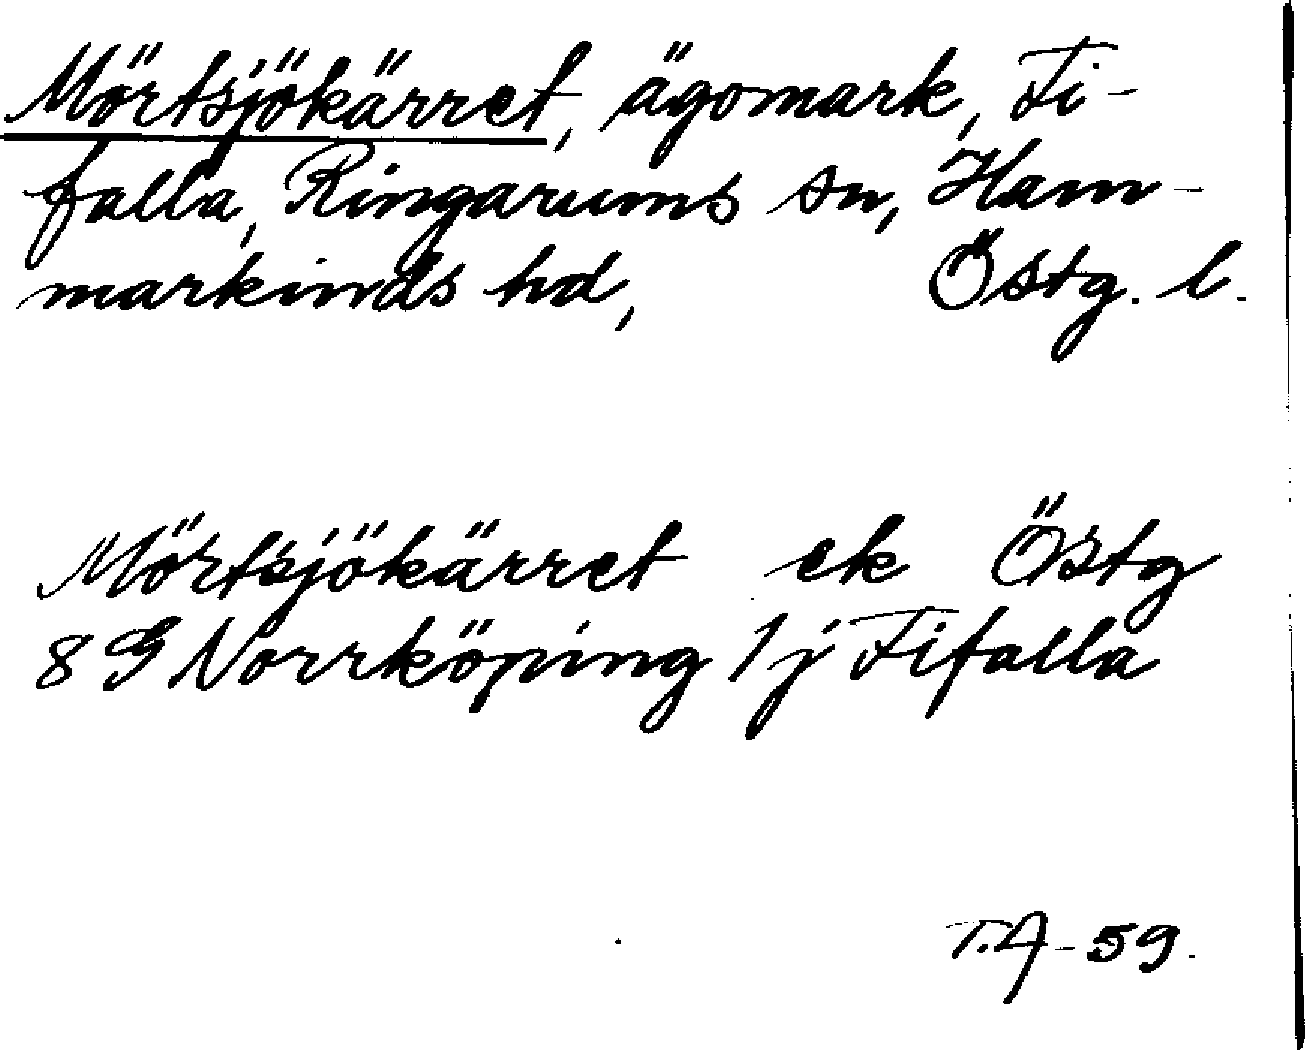 Mörtsjökärret, ägomark, Fi-
falla, Ringarums sn, Ham-
markinds hd, Östg. l.
Mörtsjökärret ek Östg
8 G Norrköping 1 j Fifalla
T.A-59.